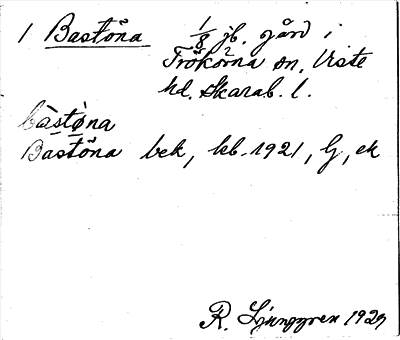 1 Bastöna 1/8 jb. gård i
Trökörna sn, Viste
hd. Skarab. l.
bàstø̀na
Bastöna bek, kb. 1921, G, ek
R. Ljunggren 1927